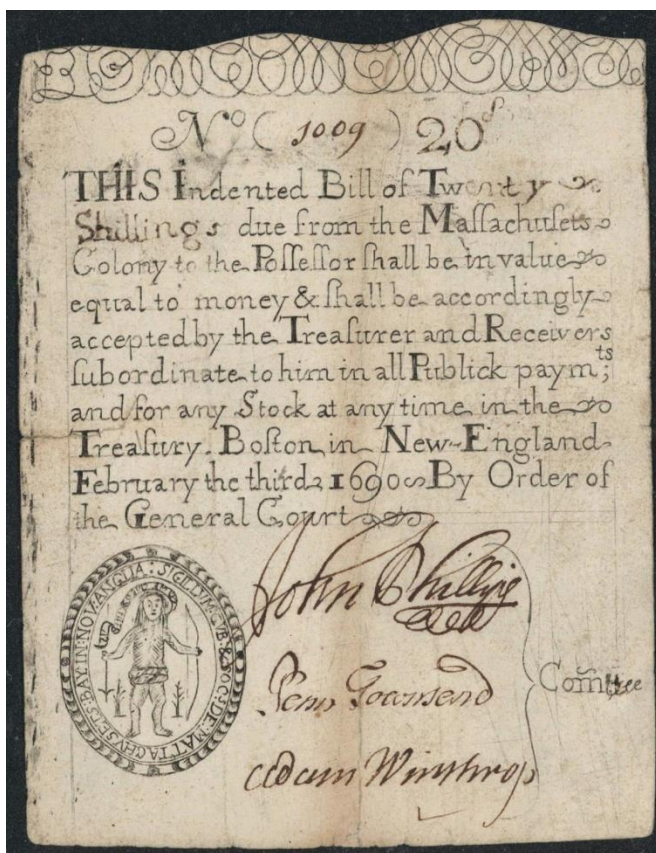 No (1009) 20s
THIS Indented Bill of Twenty
Shillings due from the Maſſachuſets
Colony to the Poſſeſſor ſhall be in value
equal to money & ſhall be accordingly
accepted by the Treaſurer and Receivers
ſubordinate to him in all Publick paymts;
and for any Stock at any time in the
Treaſury. Boſton in New-England
February the third 1690 By Order of
the General Court
SIGILLVM: GVB: & SOC: DE: MATTACHVSETS: BAY: IN: NOV: ANGLIA:
John Phillips
Penn Townsend
Adam Winthrop
Comttee